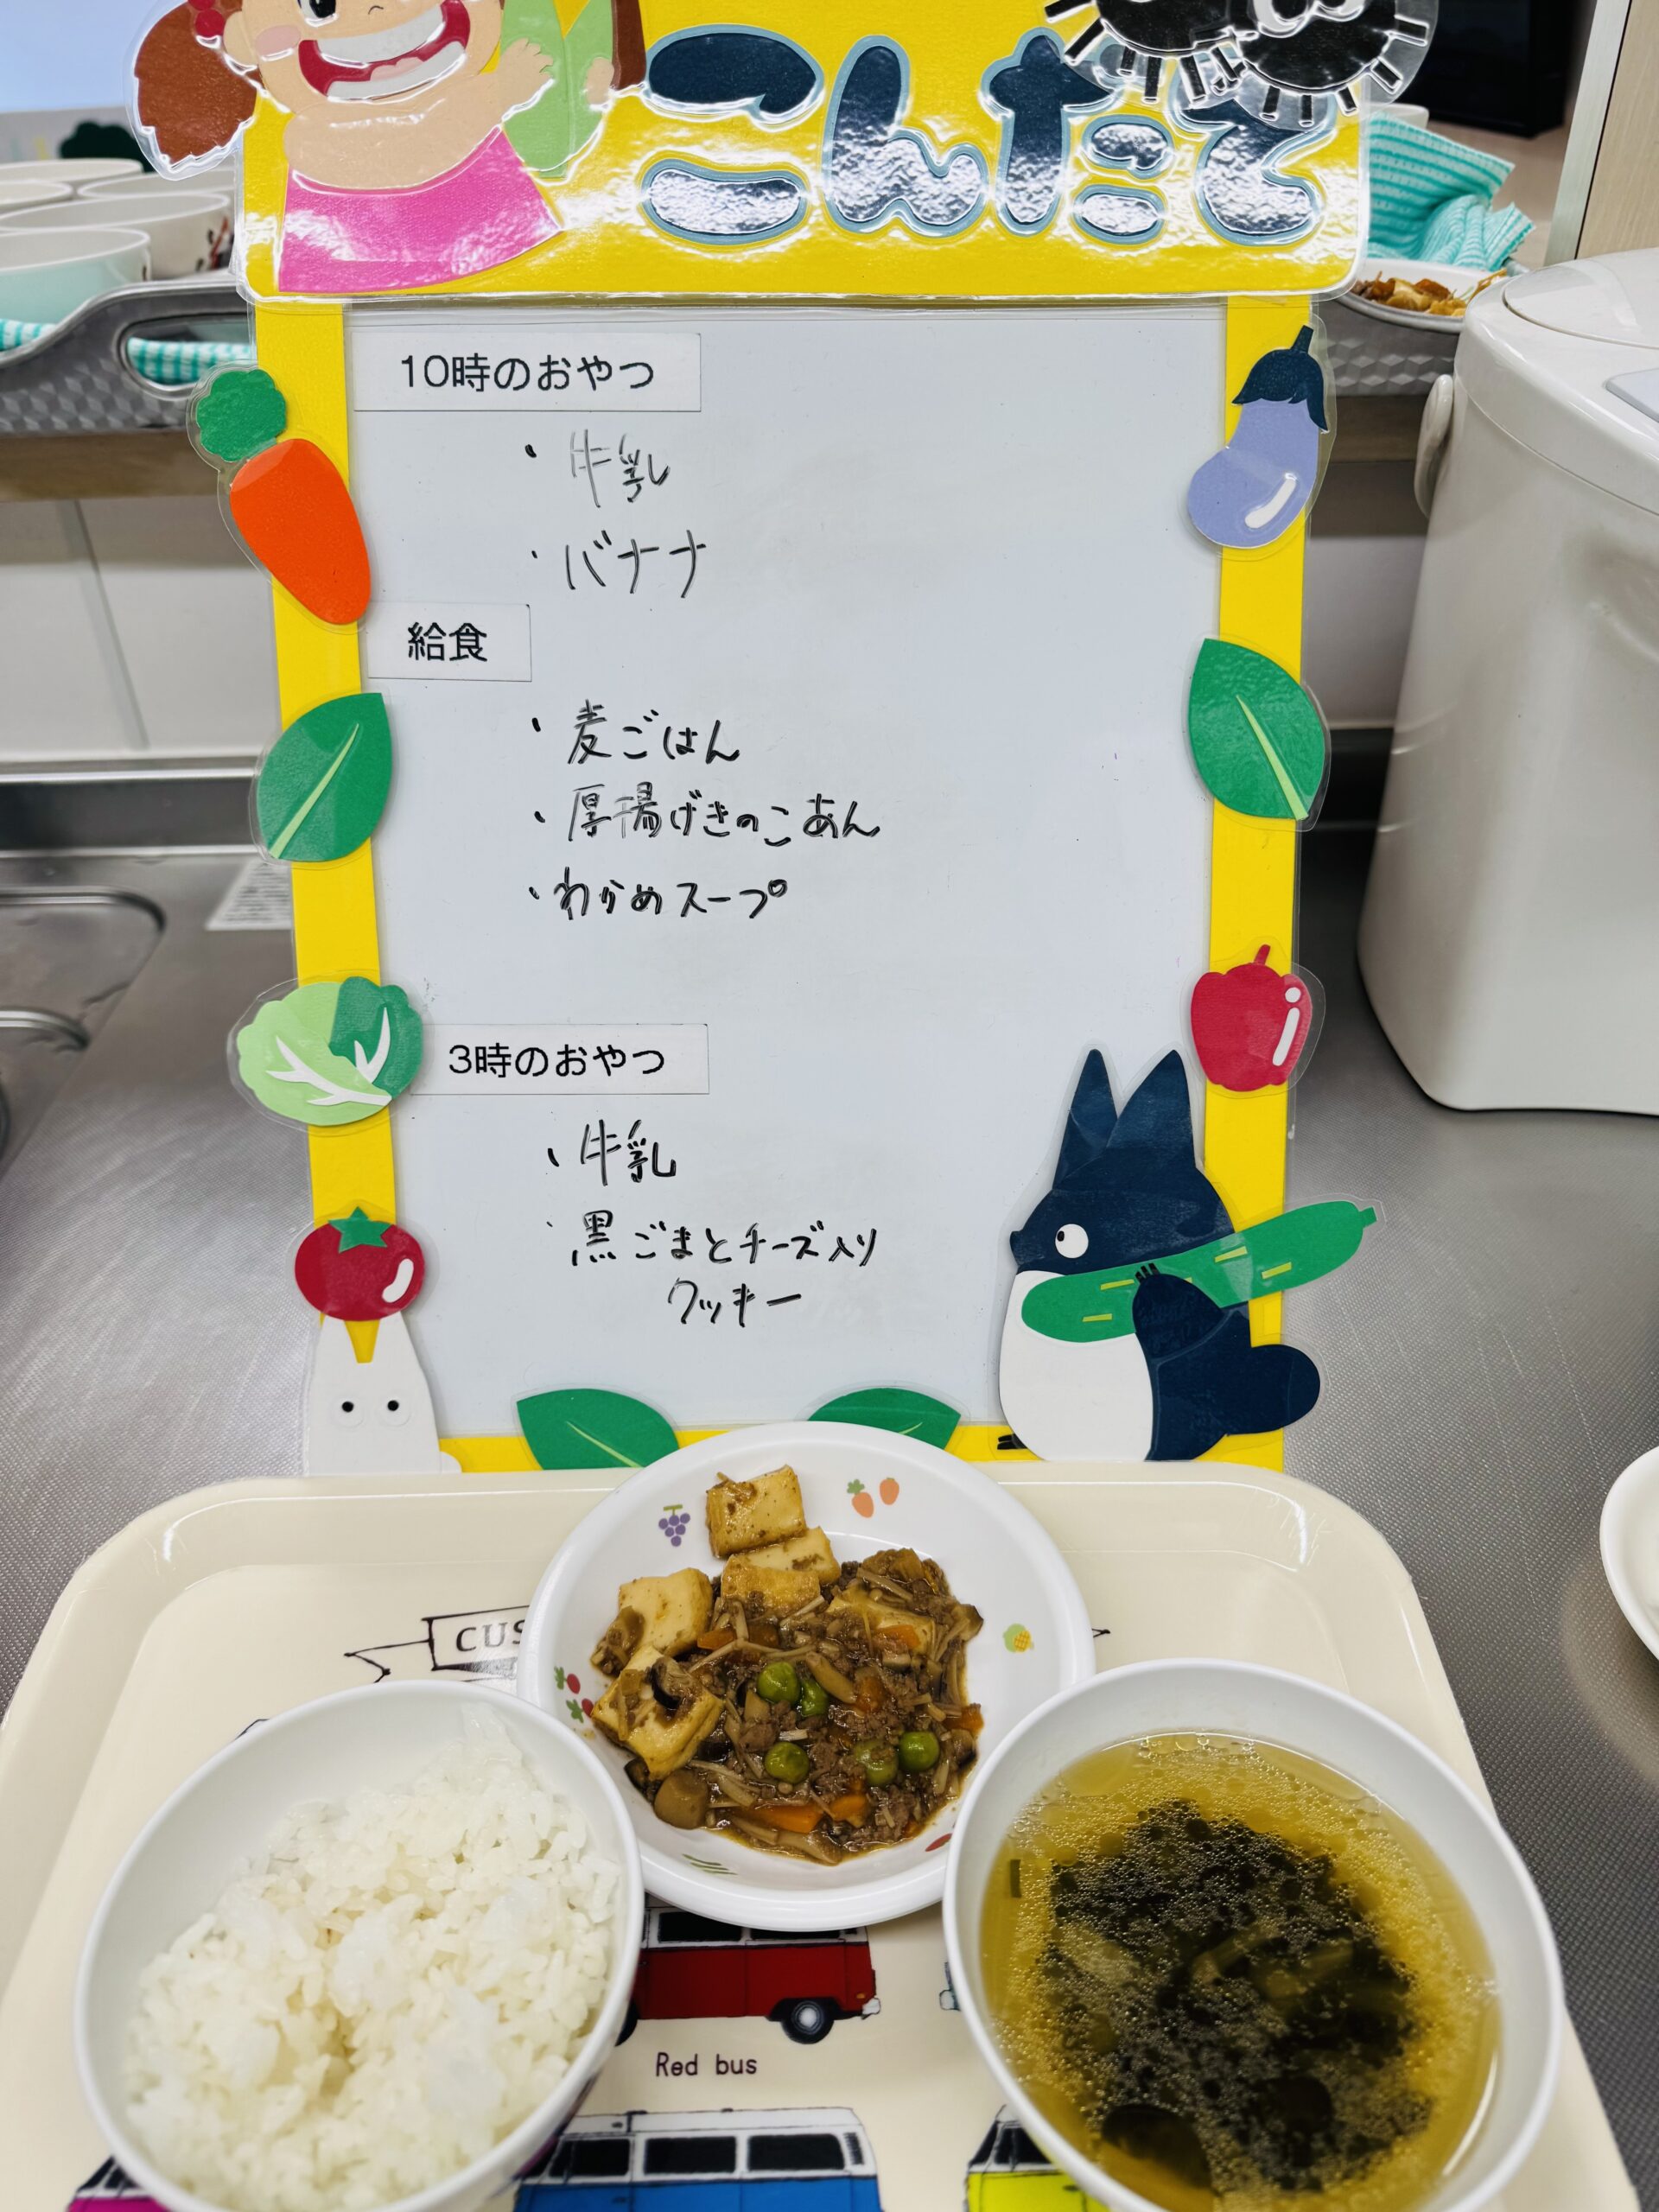 こんだて
10時のおやつ
・牛乳
・バナナ
給食
・麦ごはん
・厚揚げきのこあん
・わかめスープ
3時のおやつ
・牛乳
・黒ごまとチーズ入り
クッキー
CUS
Red bus